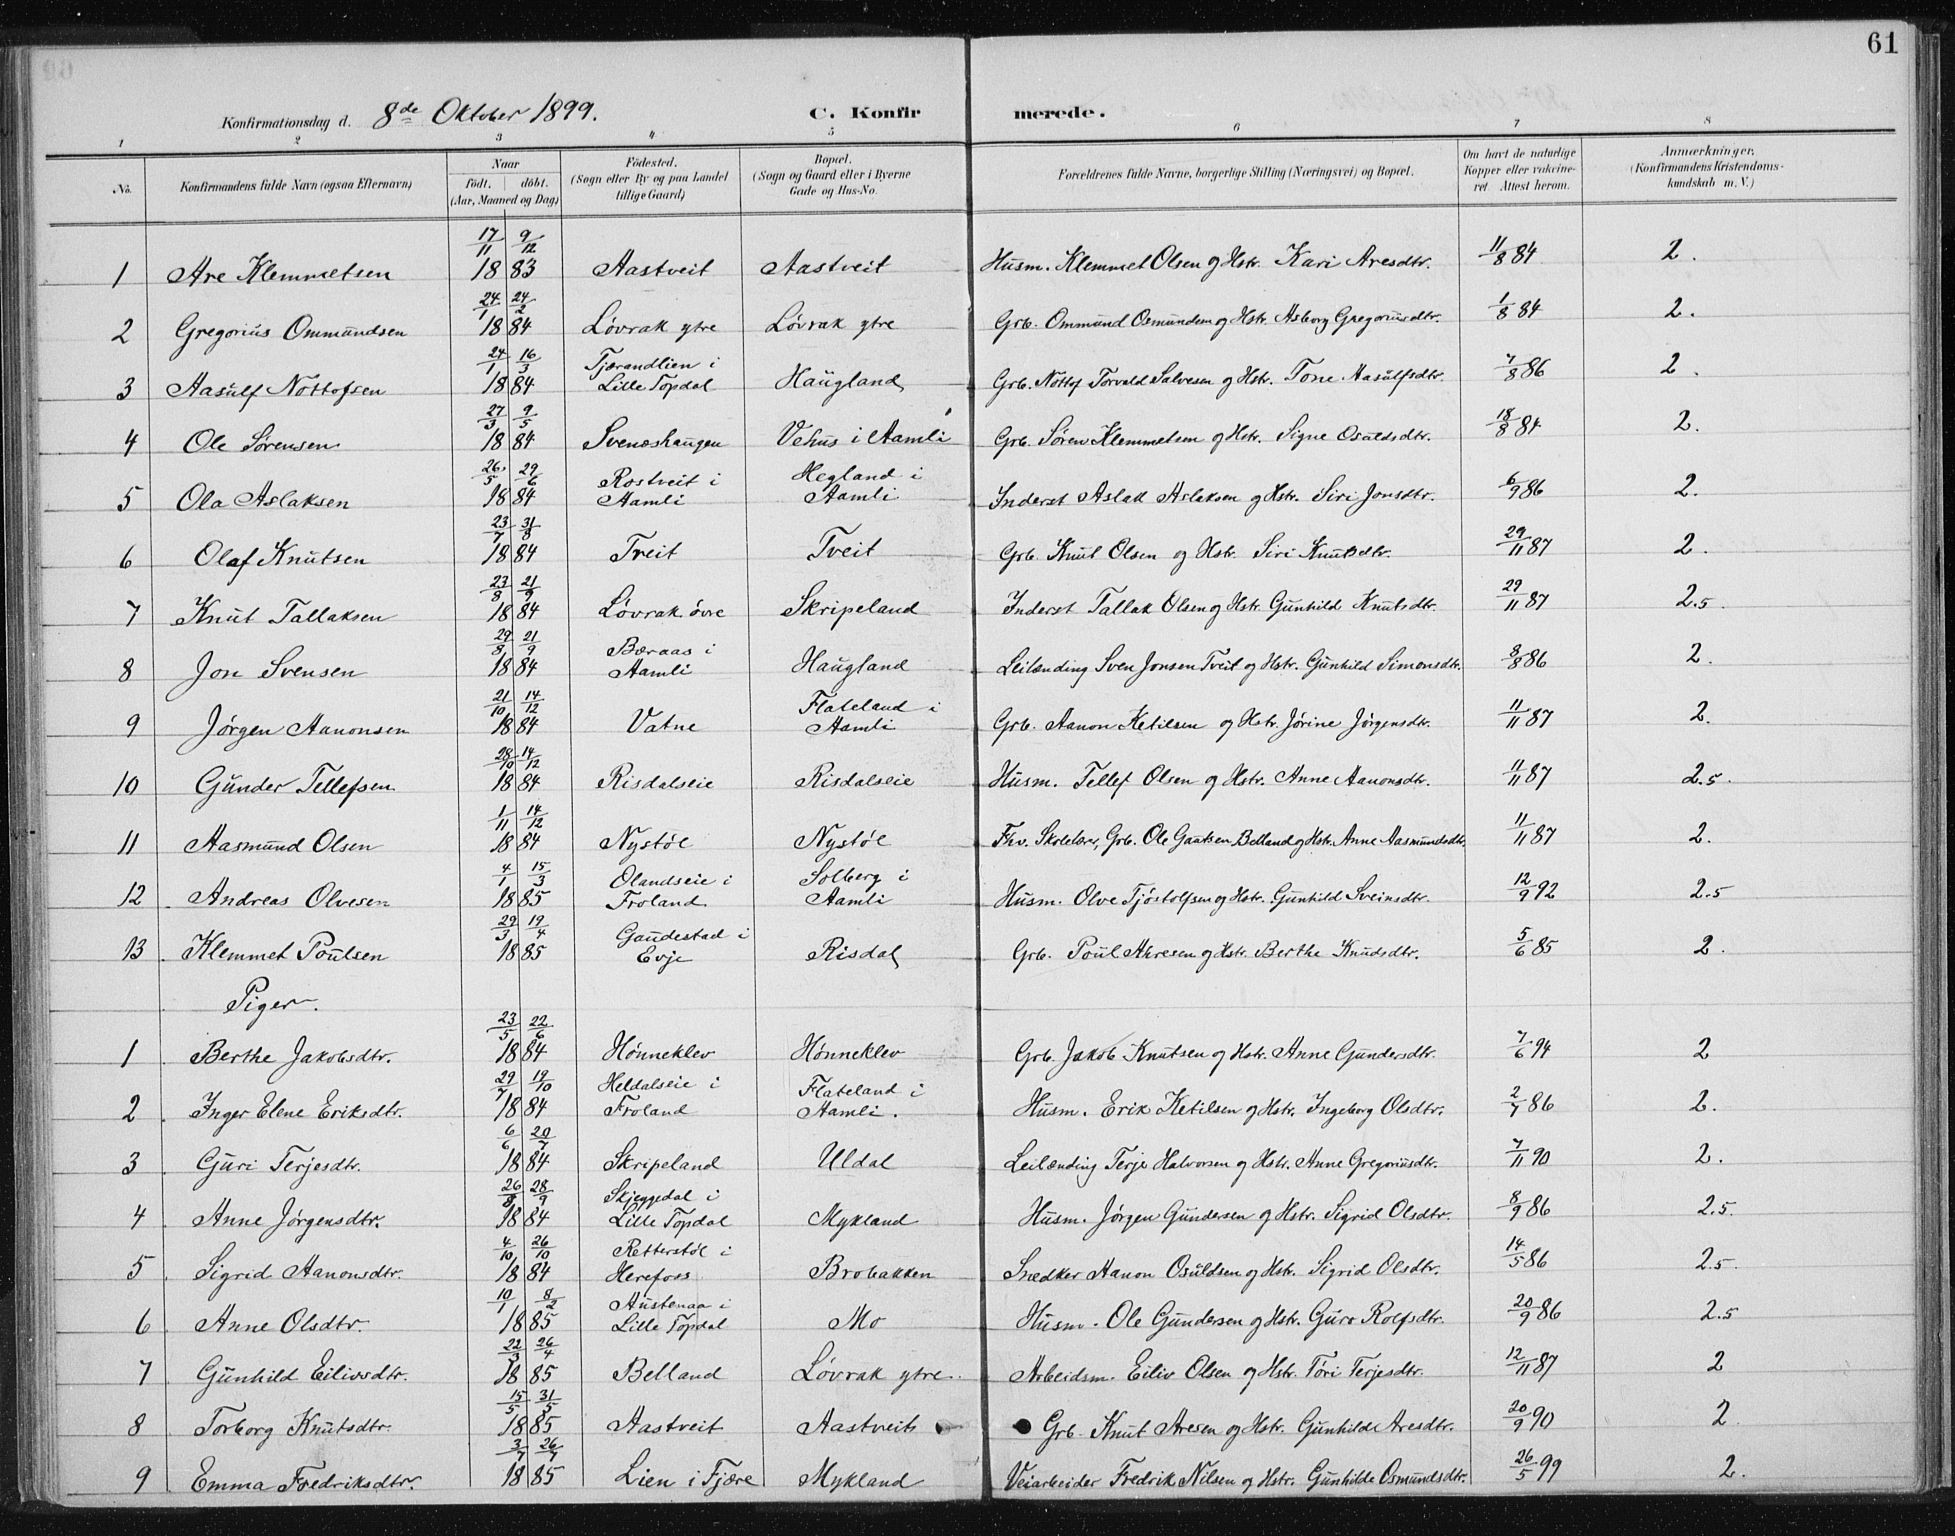 61
Konfirmationsdag d. 8de Oktober 1899. C. Konfirmerede.
1 2 3 4 5 6 7 8
No. Konfirmandens fulde Navn (ogsaa Efternavn) Naar födt. döbt. (Aar, Maaned og Dag) Födested. (Sogn eller By og paa Landet tillige Gaard) Bopæl. (Sogn og Gaard eller i Byerne Gade og Hus-No. Forældrenes fulde Navne, borgerlige Stilling (Næringsvei) og Bopæl. Om havt de naturlige Kopper eller vakcineret. Attest herom. Anmærkninger. (Konfirmandens Kristendomskundskab m. V.)
1 Are Klemmetsen 17/11 9/12 1883 Aastveit Aastveit Husm. Klemmet Olsen og Hstr. Kari Aresdtr. 11/8 84 2.
2 Gregorius Ommundsen 24/1 24/2 1884 Lövrak ytre Lövrak ytre Grb. Ommund Osmundsen og Hstr. Asborg Gregoriusdtr. 1/8 84 2.
3 Aasulf Nottofsen 24/1 16/3 1884 Tjærandlien i Lille Topdal Haugland Grb. Nottof Torvald Salvesen og Hstr. Tone Aasulfsdtr. 7/8 86 2.
4 Ole Sörensen 27/3 9/5 1884 Svenæshaugen Vehus i Aamli Grb. Sören Klemmetsen og Hstr. Signe Osuldsdtr. 18/8 84 2.
5 Ola Aslaksen 26/5 29/6 1884 Rostveit i Aamli Hegland i Aamli Inderst Aslak Aslaksen og Hstr. Siri Jonsdtr. 6/9 86 2.
6 Olaf Knutsen 23/7 31/8 1884 Tveit Tveit Grb. Knut Olsen og Hstr. Siri Knutsdtr. 29/11 87 2.
7 Knut Tallaksen 23/8 21/9 1884 Lövrak övre Skripeland Inderst Tallak Olsen og Hstr. Gunhild Knutsdtr. 29/11 87 2.5
8 Jon Svensen 29/8 21/9 1884 Baraas i Aamli Haugland Leilænding Sven Jonsen Tveit og Hstr. Gunhild Simonsdtr. 8/8 86 2.
9 Jörgen Aanonsen 21/10 14/12 1884 Vatne Flateland i Aamli Grb. Aanon Ketilsen og Hstr. Jörine Jörgensdtr. 11/11 87 2.
10 Gunder Tellefsen 28/10 14/12 1884 Risdalseie Risdalseie Husm. Tellef Olsen og Hstr. Anne Aanonsdtr. 11/11 87 2.5.
11 Aasmund Olsen 1/11 14/12 1884 Nystöl Nystöl Fhv. Skolelær, Grb. Ole Belland og Hstr. Anne Aasmundsdtr. 11/11 87 2.
12 Andreas Olvesen 4/1 15/3 1885 Olandseie i Froland Solberg i Aamli Husm. Olve Tjöstolfsen og Hstr. Gunhild Sveinsdtr. 12/9 92 2.5
13 Klemmet Poulsen 29/3 19/4 1885 Gaudestad i Evje Risdal Grb. Poul Ahresen og Hstr. Berthe Knudsdtr. 5/6 85 2.
Piger.
1 Berthe Jakobsdtr. 23/5 22/6 1884 Hönneklev Hönneklev Grb. Jakob Knutsen og Hstr. Anne Gundersdtr. 7/6 94 2
2 Inger Elene Eriksdtr. 29/7 19/10 1884 Heldalseie i Froland Flateland i Aamli. Husm. Erik Ketilsen og Hstr. Ingeborg Olsdtr. 2/7 86 2.
3 Guri Terjesdtr. 6/6 20/7 1884 Skripeland Uldal Leilænding Terje Halvorsen og Hstr. Anne Gregoriusdtr. 7/11 90 2.
4 Anne Jörgensdtr. 26/8 28/9 1884 Skjeggedal i Lille Topdal Mykland Husm. Jörgen Gundersen og Hstr. Sigrid Olsdtr. 8/9 86 2.5.
5 Sigrid Aanonsdtr. 4/10 26/10 1884 Retterstöl i Herefoss Brobakken Snedker Aanon Osuldsen og Hstr. Sigrid Olsdtr. 14/5 86 2.5.
6 Anne Olsdtr. 10/1 8/2 1885 Austenaa i Lille Topdal Mo Husm. Ole Gundersen og Hstr. Guro Rolfsdtr. 20/9 86 2.5
7 Gunhild Eilivsdtr. 22/3 26/4 1885 Belland Lövrak ytre. Arbeidsm. Eiliv Olsen og Hstr. Töri Terjesdtr. 12/11 87 2
8 Torborg Knutsdtr. 15/5 31/5 1885 Aastveit Aastveit Grb. Knut Aresen og Hstr. Gunhilde Aresdtr. 20/9 90 2
9 Emma Fredriksdtr. 3/7 26/7 1885 Lien i Fjære Mykland Veiarbeider Fredrik Nilsen og Hstr. Gunhilde Osmundsdtr. 26/5 99 2.